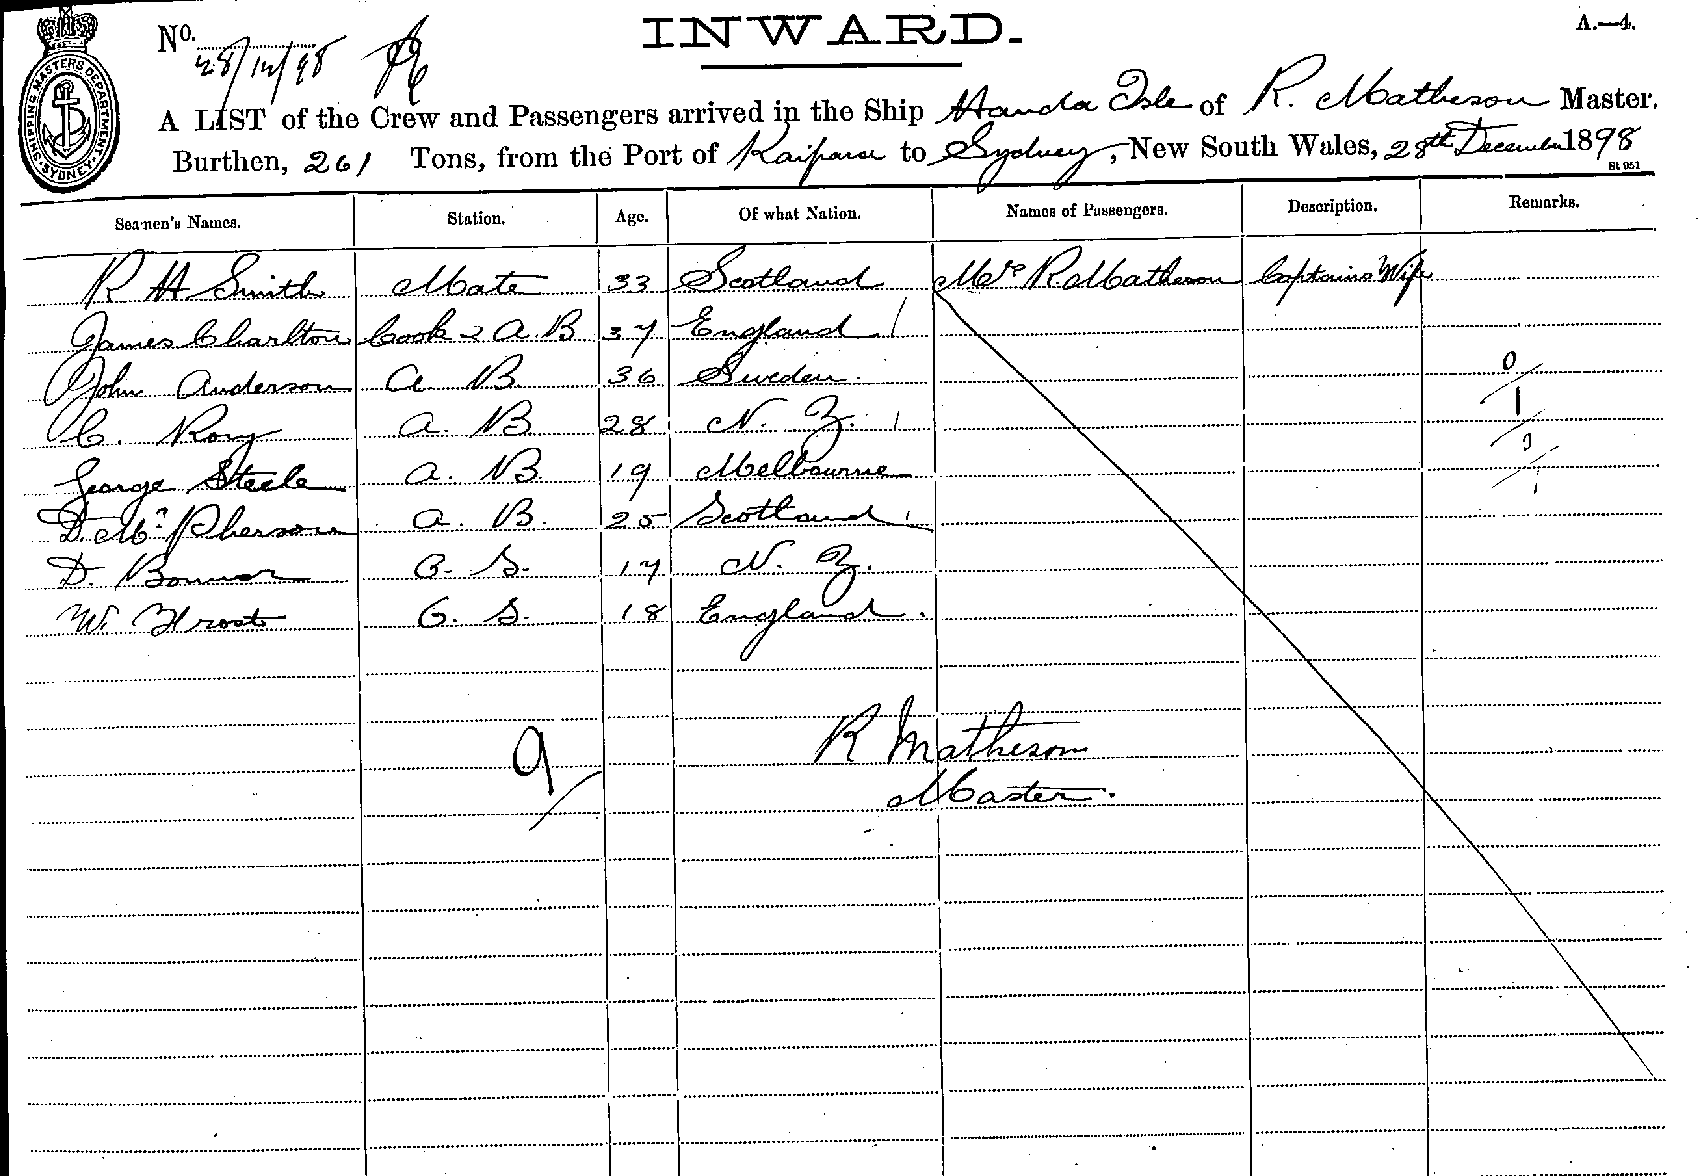 No. 28/12/98
INWARD.
A.—4.
SHIPPING MASTERS DEPARTMENT
SYDNEY
A LIST of the Crew and Passengers arrived in the Ship Handa Isle of R. Matheson Master.
Burthen, 261 Tons, from the Port of Kaipara to Sydney, New South Wales, 28th December 1898
St 951
Seamen's Names. Station. Age. Of what Nation. Names of Passengers. Description. Remarks.
R H Smith Mate 33 Scotland Mrs R Matheson Captains Wife
James Charlton Cook & A B 37 England /
John Anderson A B 36 Sweden. 0/1
C. Rory A. B 28 N. Z. /
George Steele A. B. 19 Melbourne 0/1
D. Mc Pherson A. B. 25 Scotland
D. Bonnar O. S. 17 N. Z.
W. Frost O. S. 18 England.
9/
R Matheson
Master.